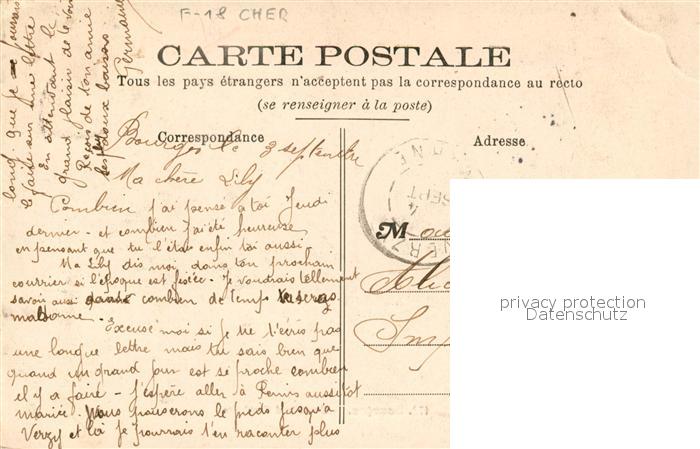 F-18 CHER
CARTE POSTALE
Tous les pays étrangers n'acceptent pas la correspondance au recto
(se renseigner à la poste)
Correspondance
Adresse
Bourges le 3 septembre
Ma chère Lily
Combien j'ai pensé à toi Jeudi
dernier - et combien j'ai été heureuse
en pensant que tu l'étais enfin toi aussi
Ma Lily dis moi dans ton prochain
courrier si l'époque est fixée. Je voudrais tellement
savoir aussi combien de temps tu seras
Excuse moi si je ne t'écris pas
une longue lettre mais tu sais bien que
quand un grand jour est si proche combien
il y a à faire - j'espère aller à Reims aussitôt
mariée. Nous pousserons le pieds jusqu'à
Verzy et là je pourrais t'en raconter plus
long que je
le faire sur une lettre
En attendant le
grand plaisir de te voir
Reçois de ton amie
les plus doux baisers
Germaine
VERZY
4
SEPT
MARNE
M
privacy protection
Datenschutz